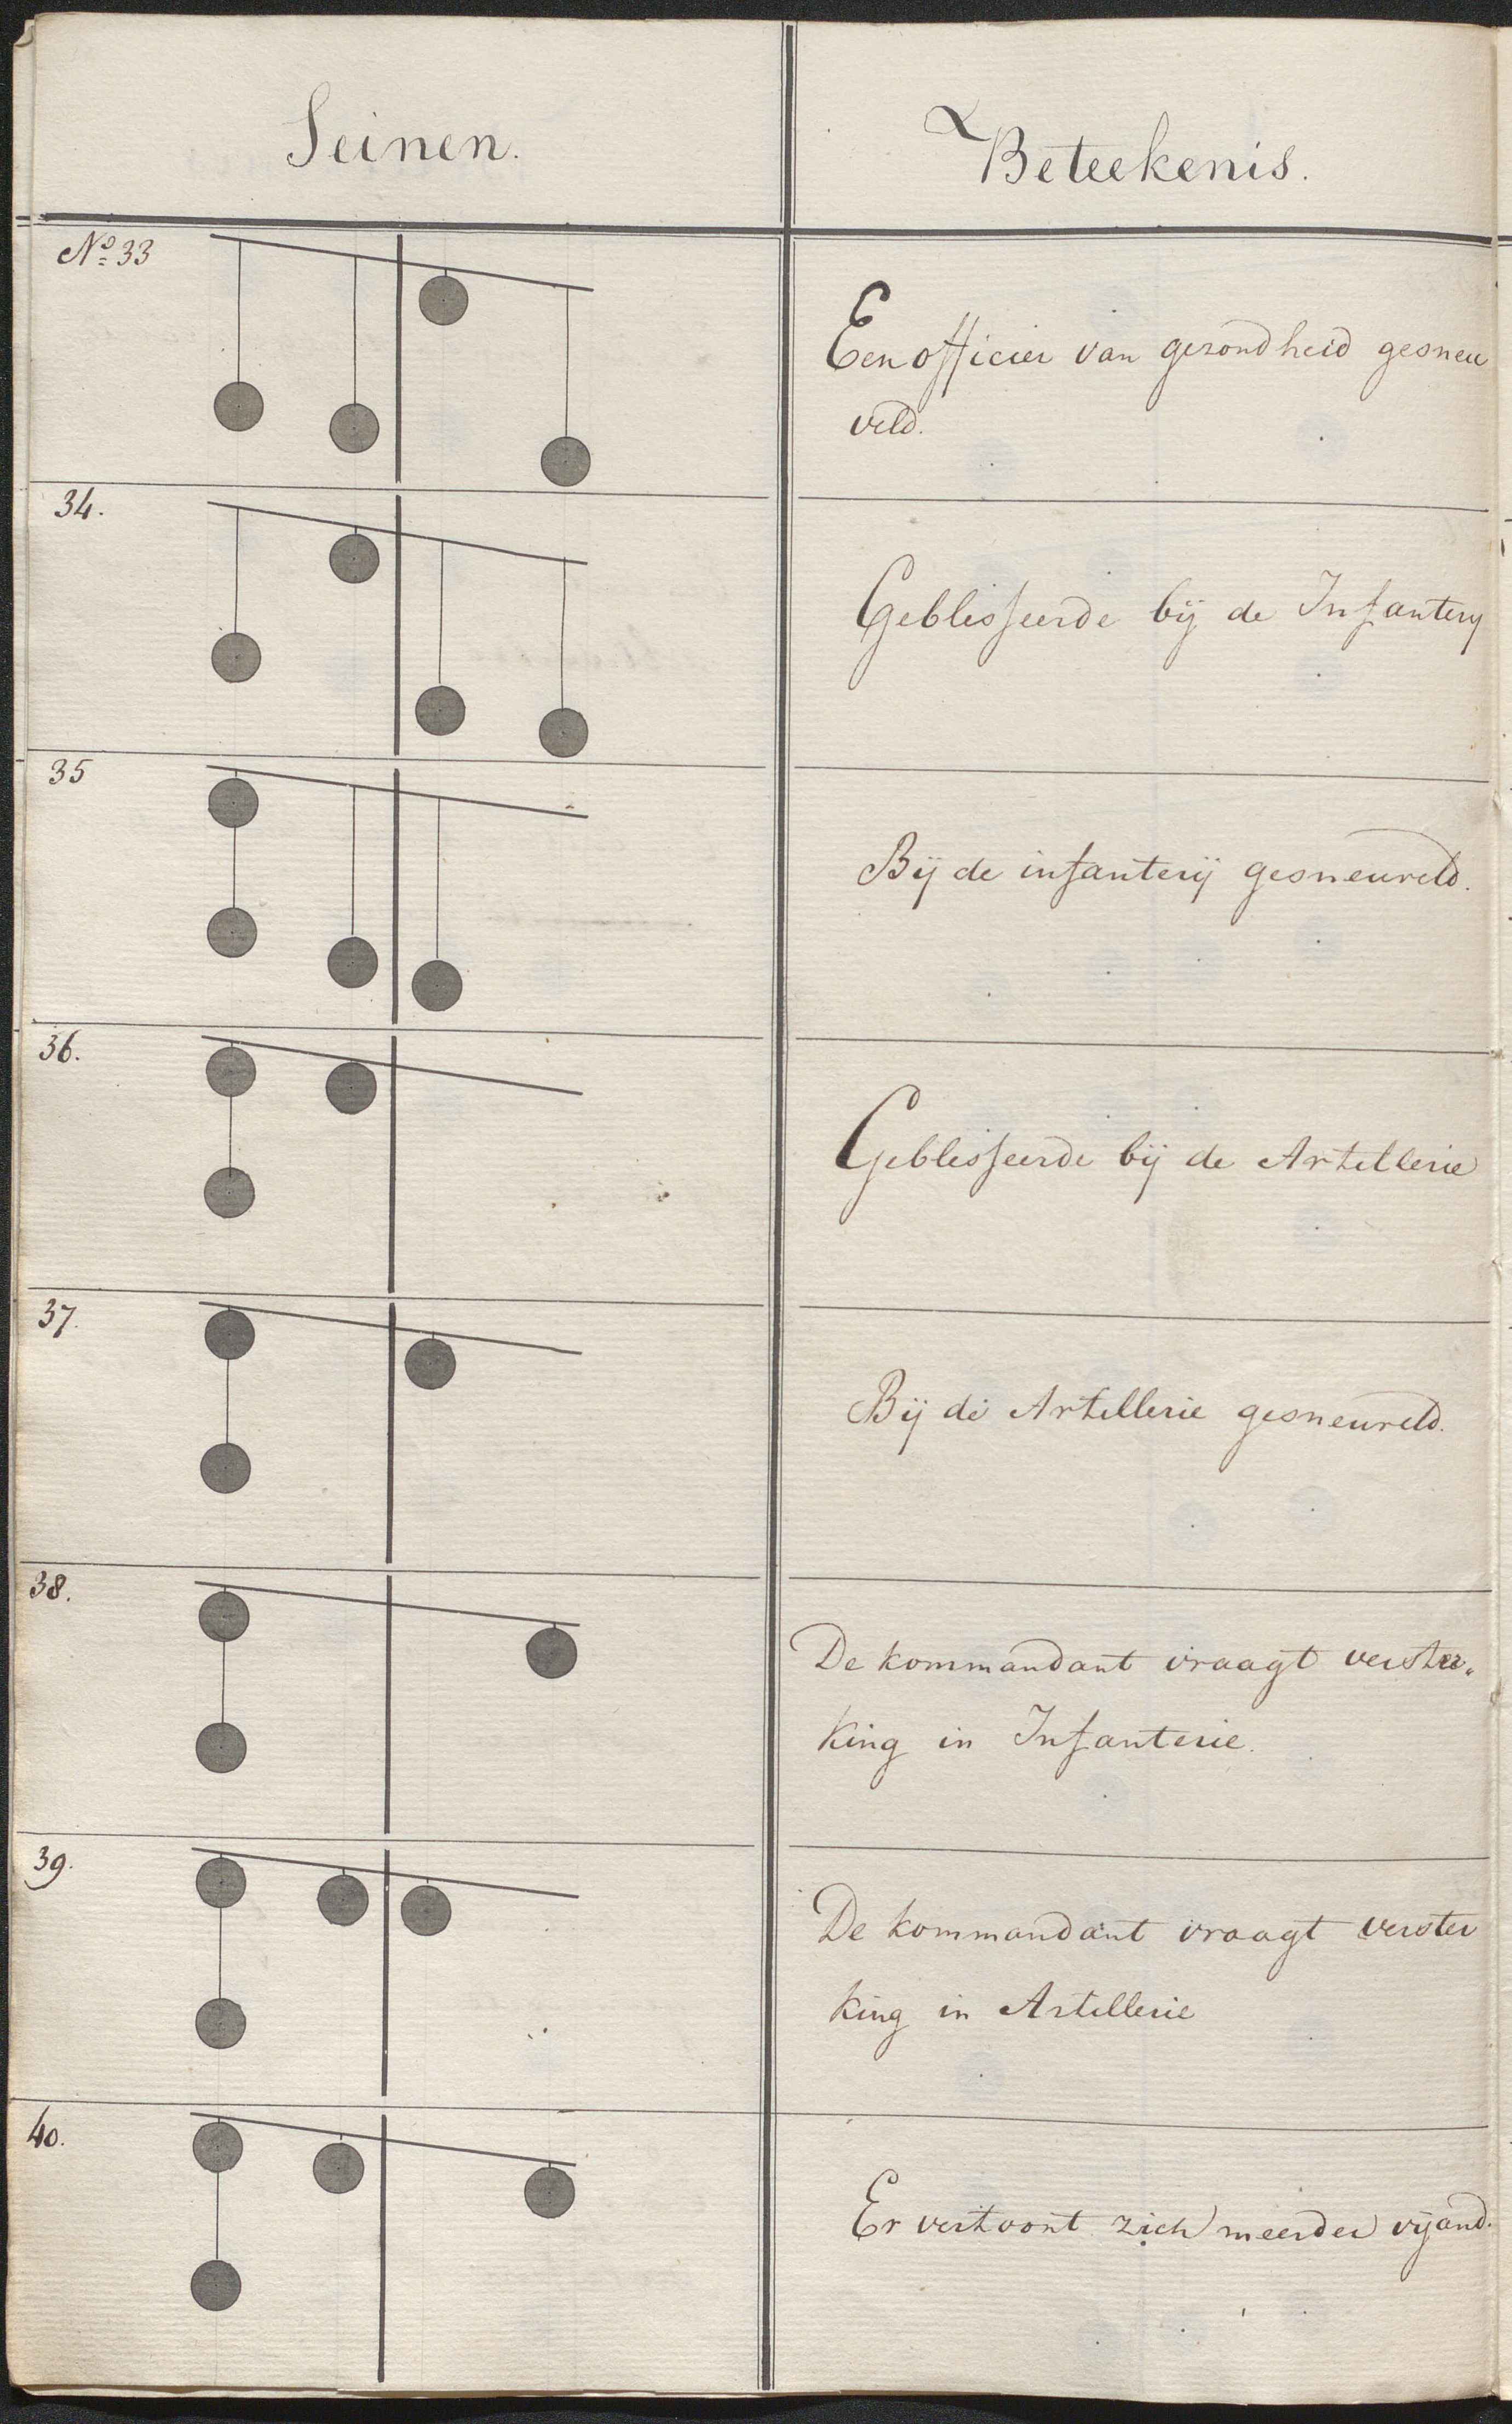 Seinen.
Beteekenis.
No. 33
Een officier van gezondheid gesneu
veld.
34.
Geblesseerde bij de Infantery
35
Bij de infanterij gesneuveld.
36.
Geblesseerde bij de Artellerie
37.
Bij de Artellerie gesneuveld.
38.
De kommandant vraagt verster„
king in Infanterie.
39.
De kommandant vraagt verster
king in Artellerie
40.
Er vertoont zich meerder vijand.